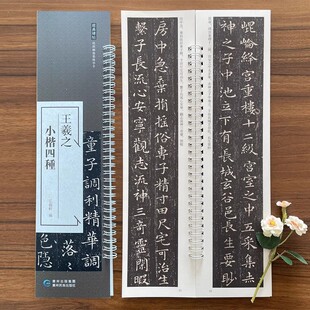 王羲之
小楷四種
童子調利精華調
落〻
色隱
崐崘絳宮重樓十二級宮室之中五采集赤
神之子中池立下有長城玄谷邑長生要眇
房中急棄捐搖俗專子精寸田尺宅可治生
繫子長流心安寧觀志流神三奇靈閒暇